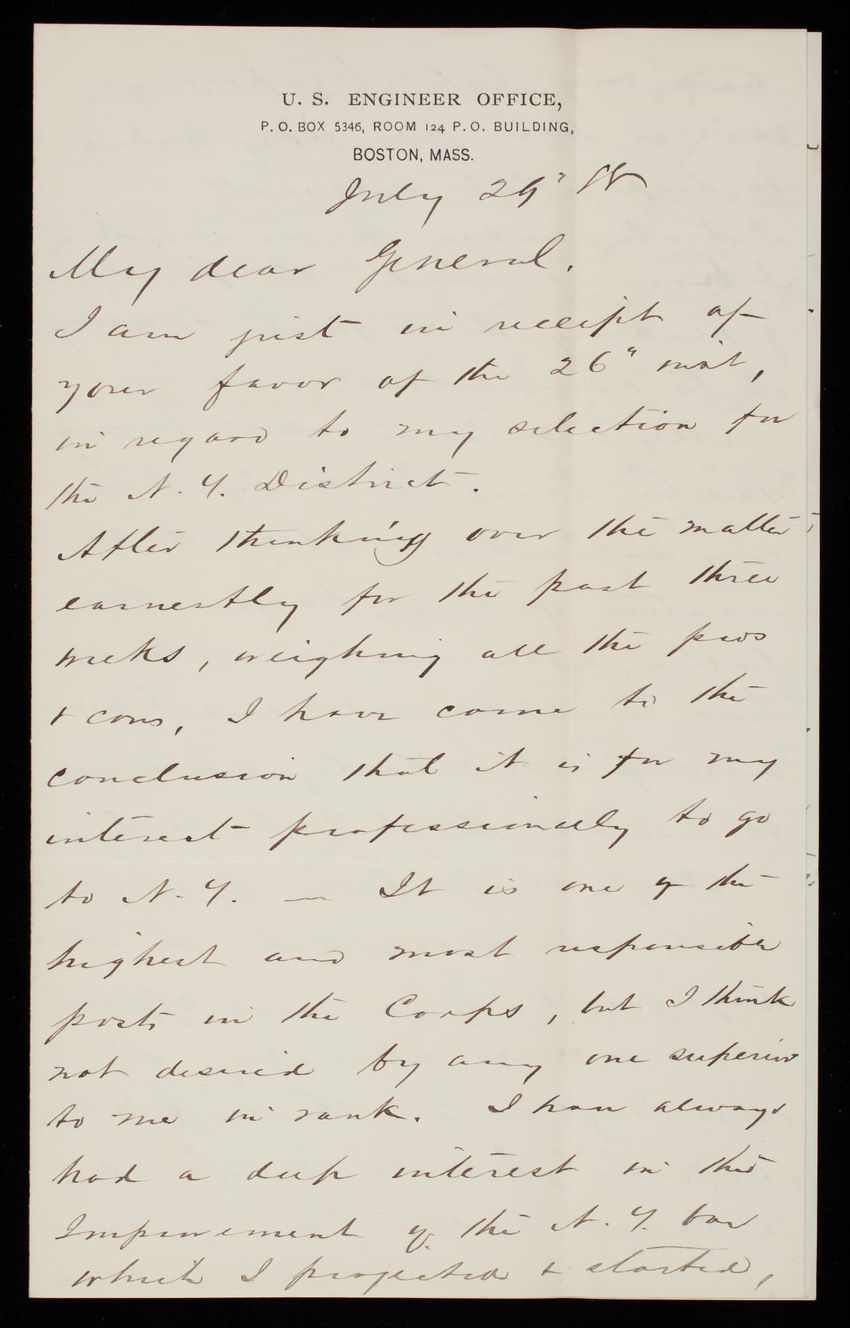 U. S. ENGINEER OFFICE,
P. O. BOX 5346, ROOM 124 P. O. BUILDING,
BOSTON, MASS.
July 29"
My dear General.
I am just in receipt of
your favor of the 26" inst,
in regard to my selection for
the N. Y. District.
After thinking over the matter
earnestly for the past three
weeks, weighing all the pros
& cons, I have come to the
conclusion that it is for my
interest professionally to go
to N. Y. — It is one of the
highest and most responsible
posts in the Corps, but I think
not desired by any one superior
to me in rank. I have always
had a deep interest in the
Improvement of the N. Y. bar
which I projected & started,